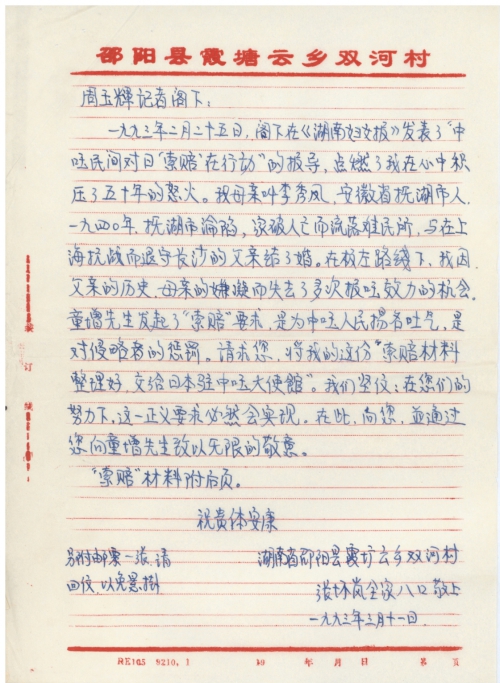 邵阳县霞塘云乡双河村
周玉辉记者阁下:
一九九三年二月二十五日,阁下在《湖南妇女报》发表了“中
国民间对日“索赔”在行动”的报导,点燃了我在心中积
压了五十年的怒火。我母亲叫李秀凤,安徽省抚湖市人,
一九四〇年,抚湖市沦陷,家破人亡而流落难民所,与在上
海抗战而退守长沙的父亲结了婚。在极左路线下,我因
父亲的历史,母亲的嫌疑而失去了多次报国效力的机会。
童增先生发起了“索赔”要求,是为中国人民扬名吐气,是
对侵略者的惩罚。请求您,将我的这份“索赔材料
整理好,交给日本驻中国大使馆”。我们坚信:在您们的
努力下,这一正义要求必然会实现。在此,向您,并通过
您向童增先生致以无限的敬意。
“索赔”材料附后页。
祝贵体安康
另附邮票一张,请
回信,以免悬掛
湖南省邵阳县霞塘云乡双河村
张怀岚全家八口敬上
一九九三年三月十一日.
装
订
线
RE105 8210.1
19 年 月 日 第 页